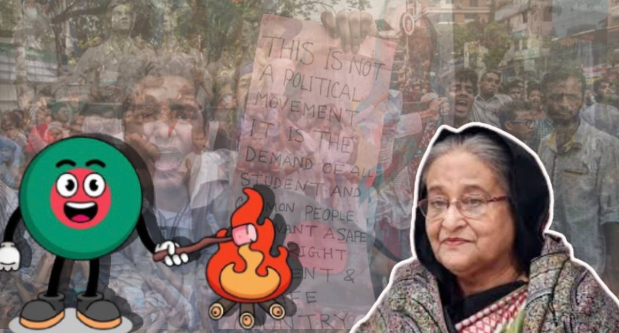 THIS IS NOT
A POLITICAL
MOVEMENT
IT IS THE
DEMAND OF ALL
STUDENT AND
MON PEOPLE
WANT A SAFE
RIGHT
ENT &
FE
NTRY